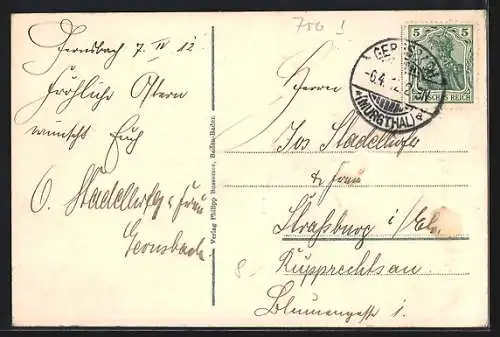 Gernsbach 7. IV 12
Fröhliche Ostern
wünscht Euch
O. Stadelhofer & Frau
Gernsbach
Verlag Philipp Bussemer, Baden-Baden.
700
5 5
DEUTSCHES REICH
GERNSBACH
-6.4.12
*(MURGTHAL)*
Herrn
Jos Stadelhofer
& Frau
Straßburg i/Els.
Rupprechtsau.
Blumengasse 1.